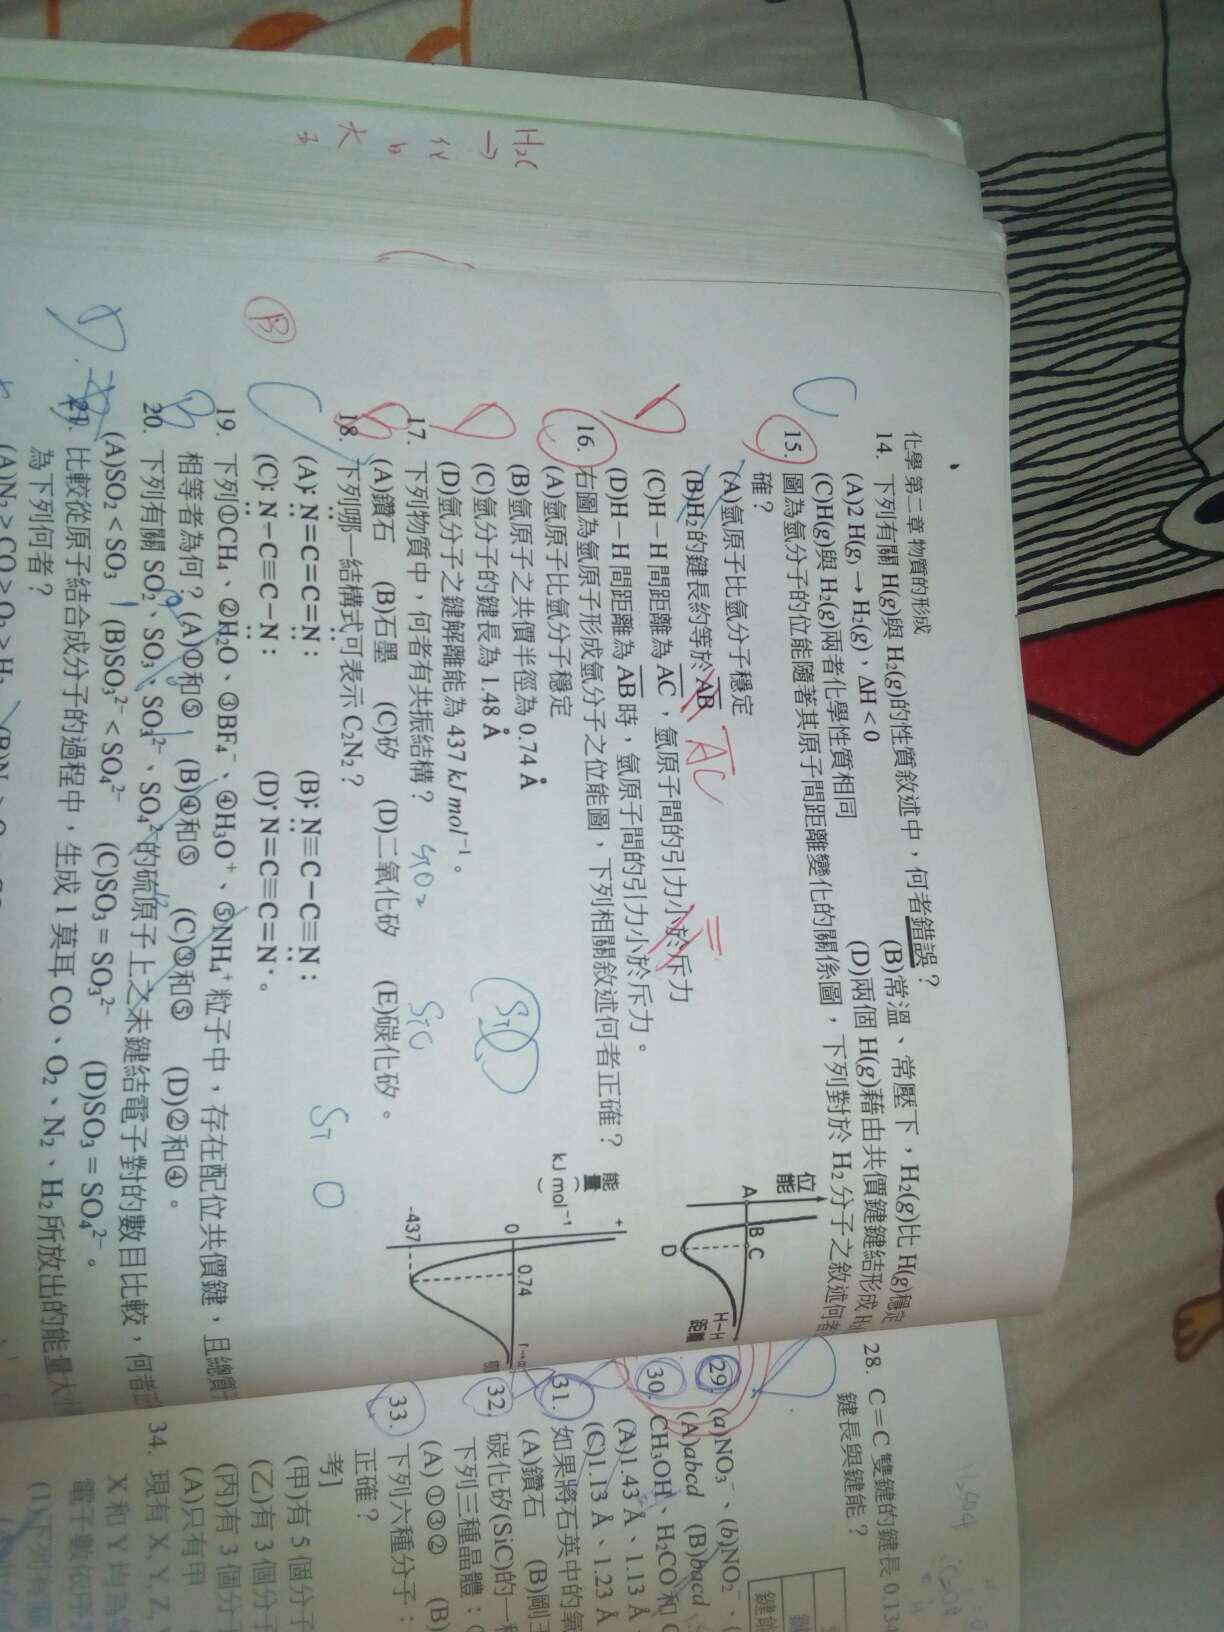 化學 第二章 物質的形成
14. 下列有關 H(g)與 H₂(g)的性質敘述中，何者錯誤？
(A)2 H(g) → H₂(g)，ΔH < 0 (B)常溫、常壓下，H₂(g)比 H(g)穩定
(C)H(g)與 H₂(g)兩者化學性質相同 (D)兩個 H(g)藉由共價鍵鍵結形成
C 15. 圖為氫分子的位能隨著其原子間距離變化的關係圖，下列對於 H₂ 分子之敘述何者
確？
(A)氫原子比氫分子穩定
(B)H₂的鍵長約等於 AB AC
(C)H－H 間距離為 AC，氫原子間的引力小於斥力 =
(D)H－H 間距離為 AB 時，氫原子間的引力小於斥力。
位能
A B C
D
H－H
距離
D 16. 右圖為氫原子形成氫分子之位能圖，下列相關敘述何者正確？
(A)氫原子比氫分子穩定
(B)氫原子之共價半徑為 0.74 Å
(C)氫分子的鍵長為 1.48 Å
(D)氫分子之鍵解離能為 437 kJ mol⁻¹。
能量
kJ mol⁻¹
+
0
0.74
-437
D 17. 下列物質中，何者有共振結構？ SiO₂
(A)鑽石 (B)石墨 (C)矽 (D)二氧化矽 (E)碳化矽。 SiC
B 18. 下列哪一結構式可表示 C₂N₂？
Si O
(A):N̈=C=C=N̈: (B):N≡C－C≡N:
(C):N̈－C≡C－N̈: (D)·N=C≡C=N·。
C B 19. 下列①CH₄、②H₂O、③BF₄⁻、④H₃O⁺、⑤NH₄⁺ 粒子中，存在配位共價鍵，且總
相等者為何？(A)①和⑤ (B)④和⑤ (C)③和⑤ (D)②和④。
B 20. 下列有關 SO₂、SO₃、SO₃²⁻、SO₄²⁻的硫原子上之未鍵結電子對的數目比較，何者
(A)SO₂ < SO₃ (B)SO₃²⁻ < SO₄²⁻ (C)SO₃ = SO₃²⁻ (D)SO₃ = SO₄²⁻。
D 21. 比較從原子結合成分子的過程中，生成 1 莫耳 CO、O₂、N₂、H₂所放出的能量大
為下列何者？
(A)N₂ > CO > O₂ > H₂
28. C＝C 雙鍵的鍵長 0.134
鍵長與鍵能？
29. (a)NO₃⁻、(b)NO₂⁻、
(A)abcd (B)bacd
30. CH₃OH、H₂CO 和
(A)1.43 Å、1.13
(C)1.13 Å、1.23 Å
31. 如果將石英中的氧
(A)鑽石 (B)剛玉
32. 碳化矽(SiC)的一
下列三種晶體：
(A) ①③② (B)
33. 下列六種分子：
正確？
考]
(甲)有 5 個分子
(乙)有 3 個分子
(丙)有 3 個分子
(A)只有甲
34. 現有 X, Y, Z,
X 和 Y 均為
電子數依序
(1)下列有關